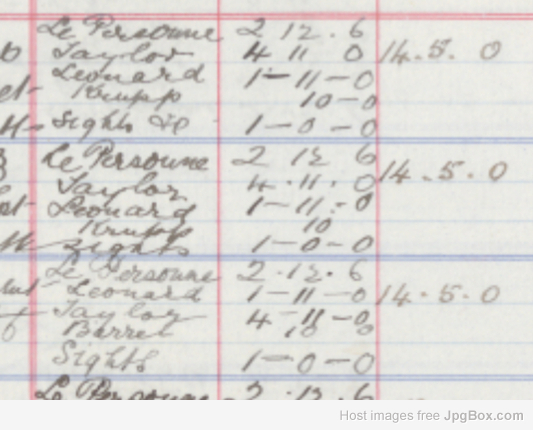 Le Personne 2 12 . 6
Taylor 4 11 0 14 . 5 . 0
Leonard 1 - 11 - 0
Krupp 10 - 0
Sights &c 1 - 0 - 0
Le Personne 2 12 6
Taylor 4 . 11 . 0 14 . 5 . 0
Leonard 1 - 11 - 0
Krupp 10
Sights 1 - 0 - 0
Le Personne 2 . 12 . 6
Leonard 1 - 11 - 0 14 . 5 . 0
Taylor 4 - 11 - 0
Barrel 10 0
Sights 1 - 0 - 0
Le Personne 2 . 12 . 6
Host images free JpgBox.com